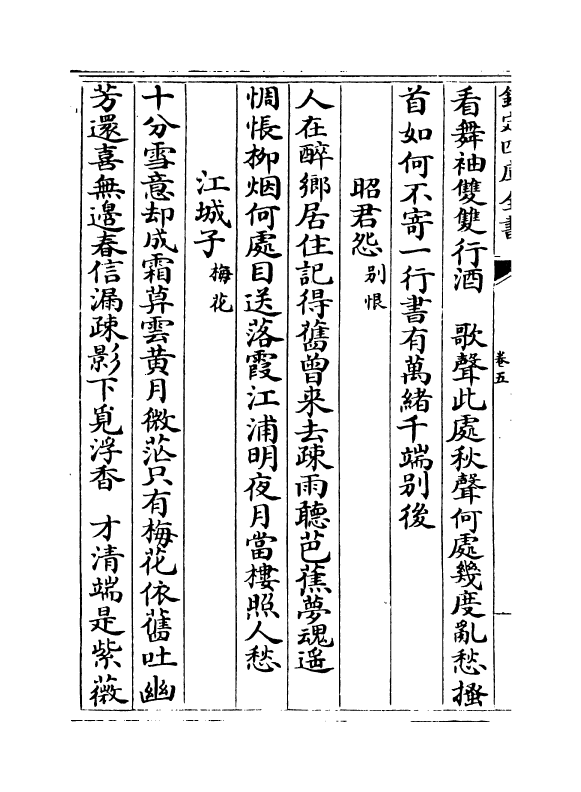 欽定四庫全書
卷五
看舞袖雙雙行酒　歌聲此處秋聲何處幾度亂愁搔
首如何不寄一行書有萬緒千端别後
昭君怨别恨
人在醉鄉居住記得舊曾来去疎雨聽芭蕉夢魂遥
惆悵栁烟何處目送落霞江浦明夜月當樓照人愁
江城子梅花
十分雪意却成霜暮雲黄月微茫只有梅花依舊吐幽
芳還喜無邉春信漏疎影下覓浮香　才清端是紫薇